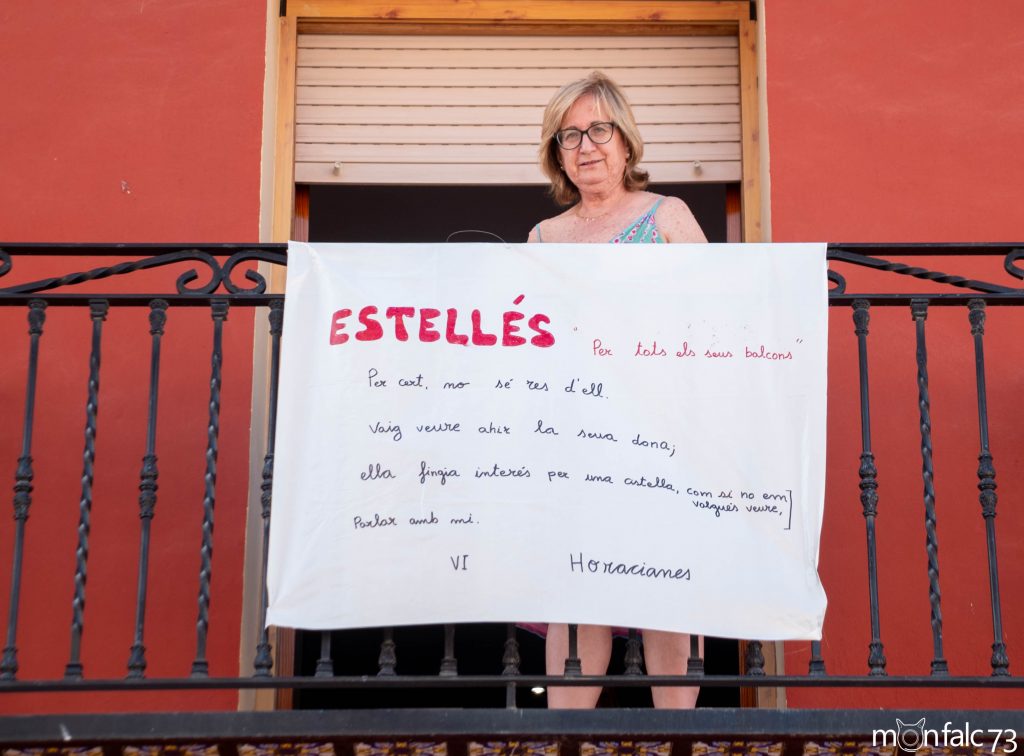 ESTELLÉS
"Per tots els seus balcons"
Per cert, no sé res d'ell.
Vaig veure ahir la seua dona;
ella fingia interés per una astella, com si no em
volgués veure,]
Parlar amb mi.
VI Horacianes
monfalc 73